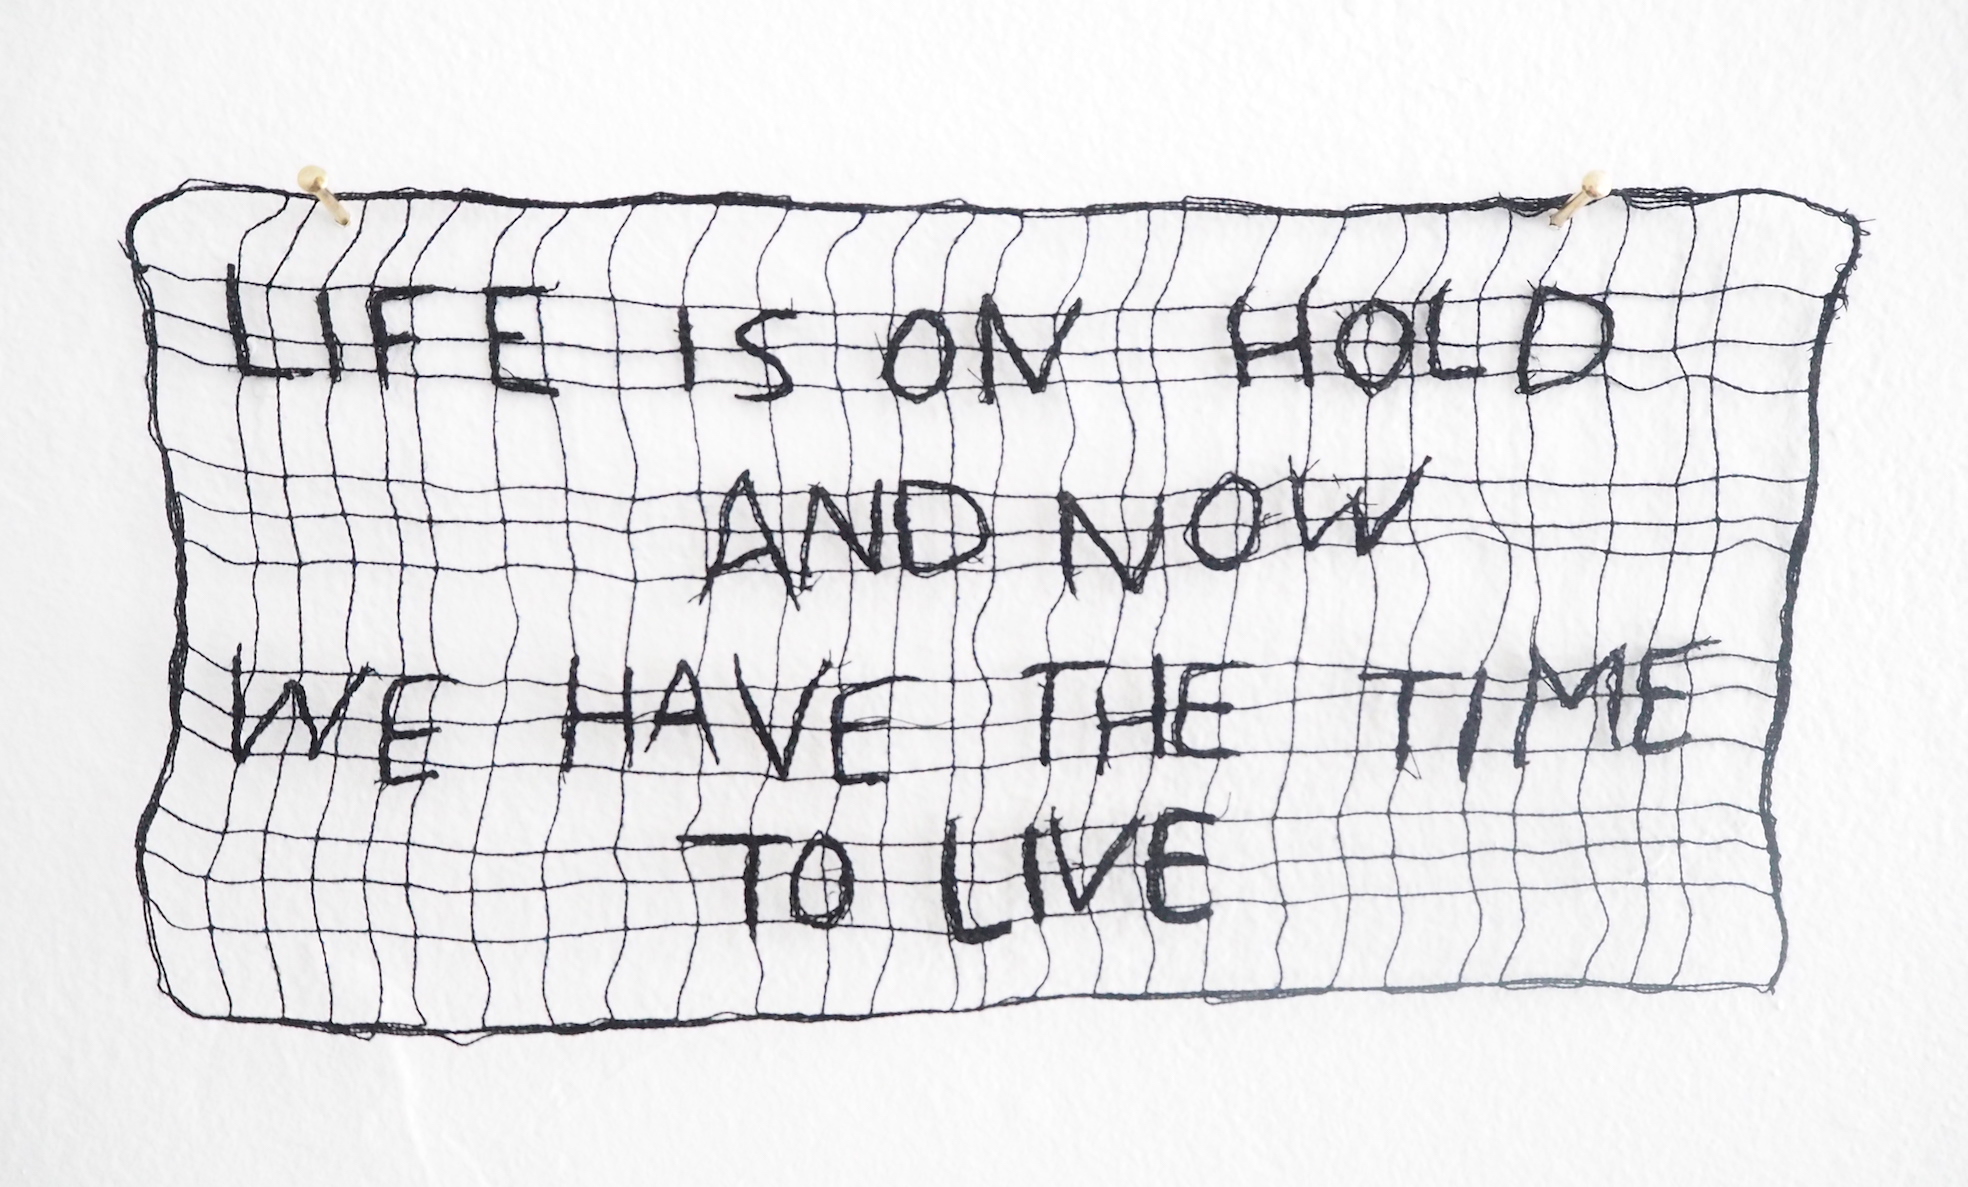 LIFE IS ON HOLD
AND NOW
WE HAVE THE TIME
TO LIVE